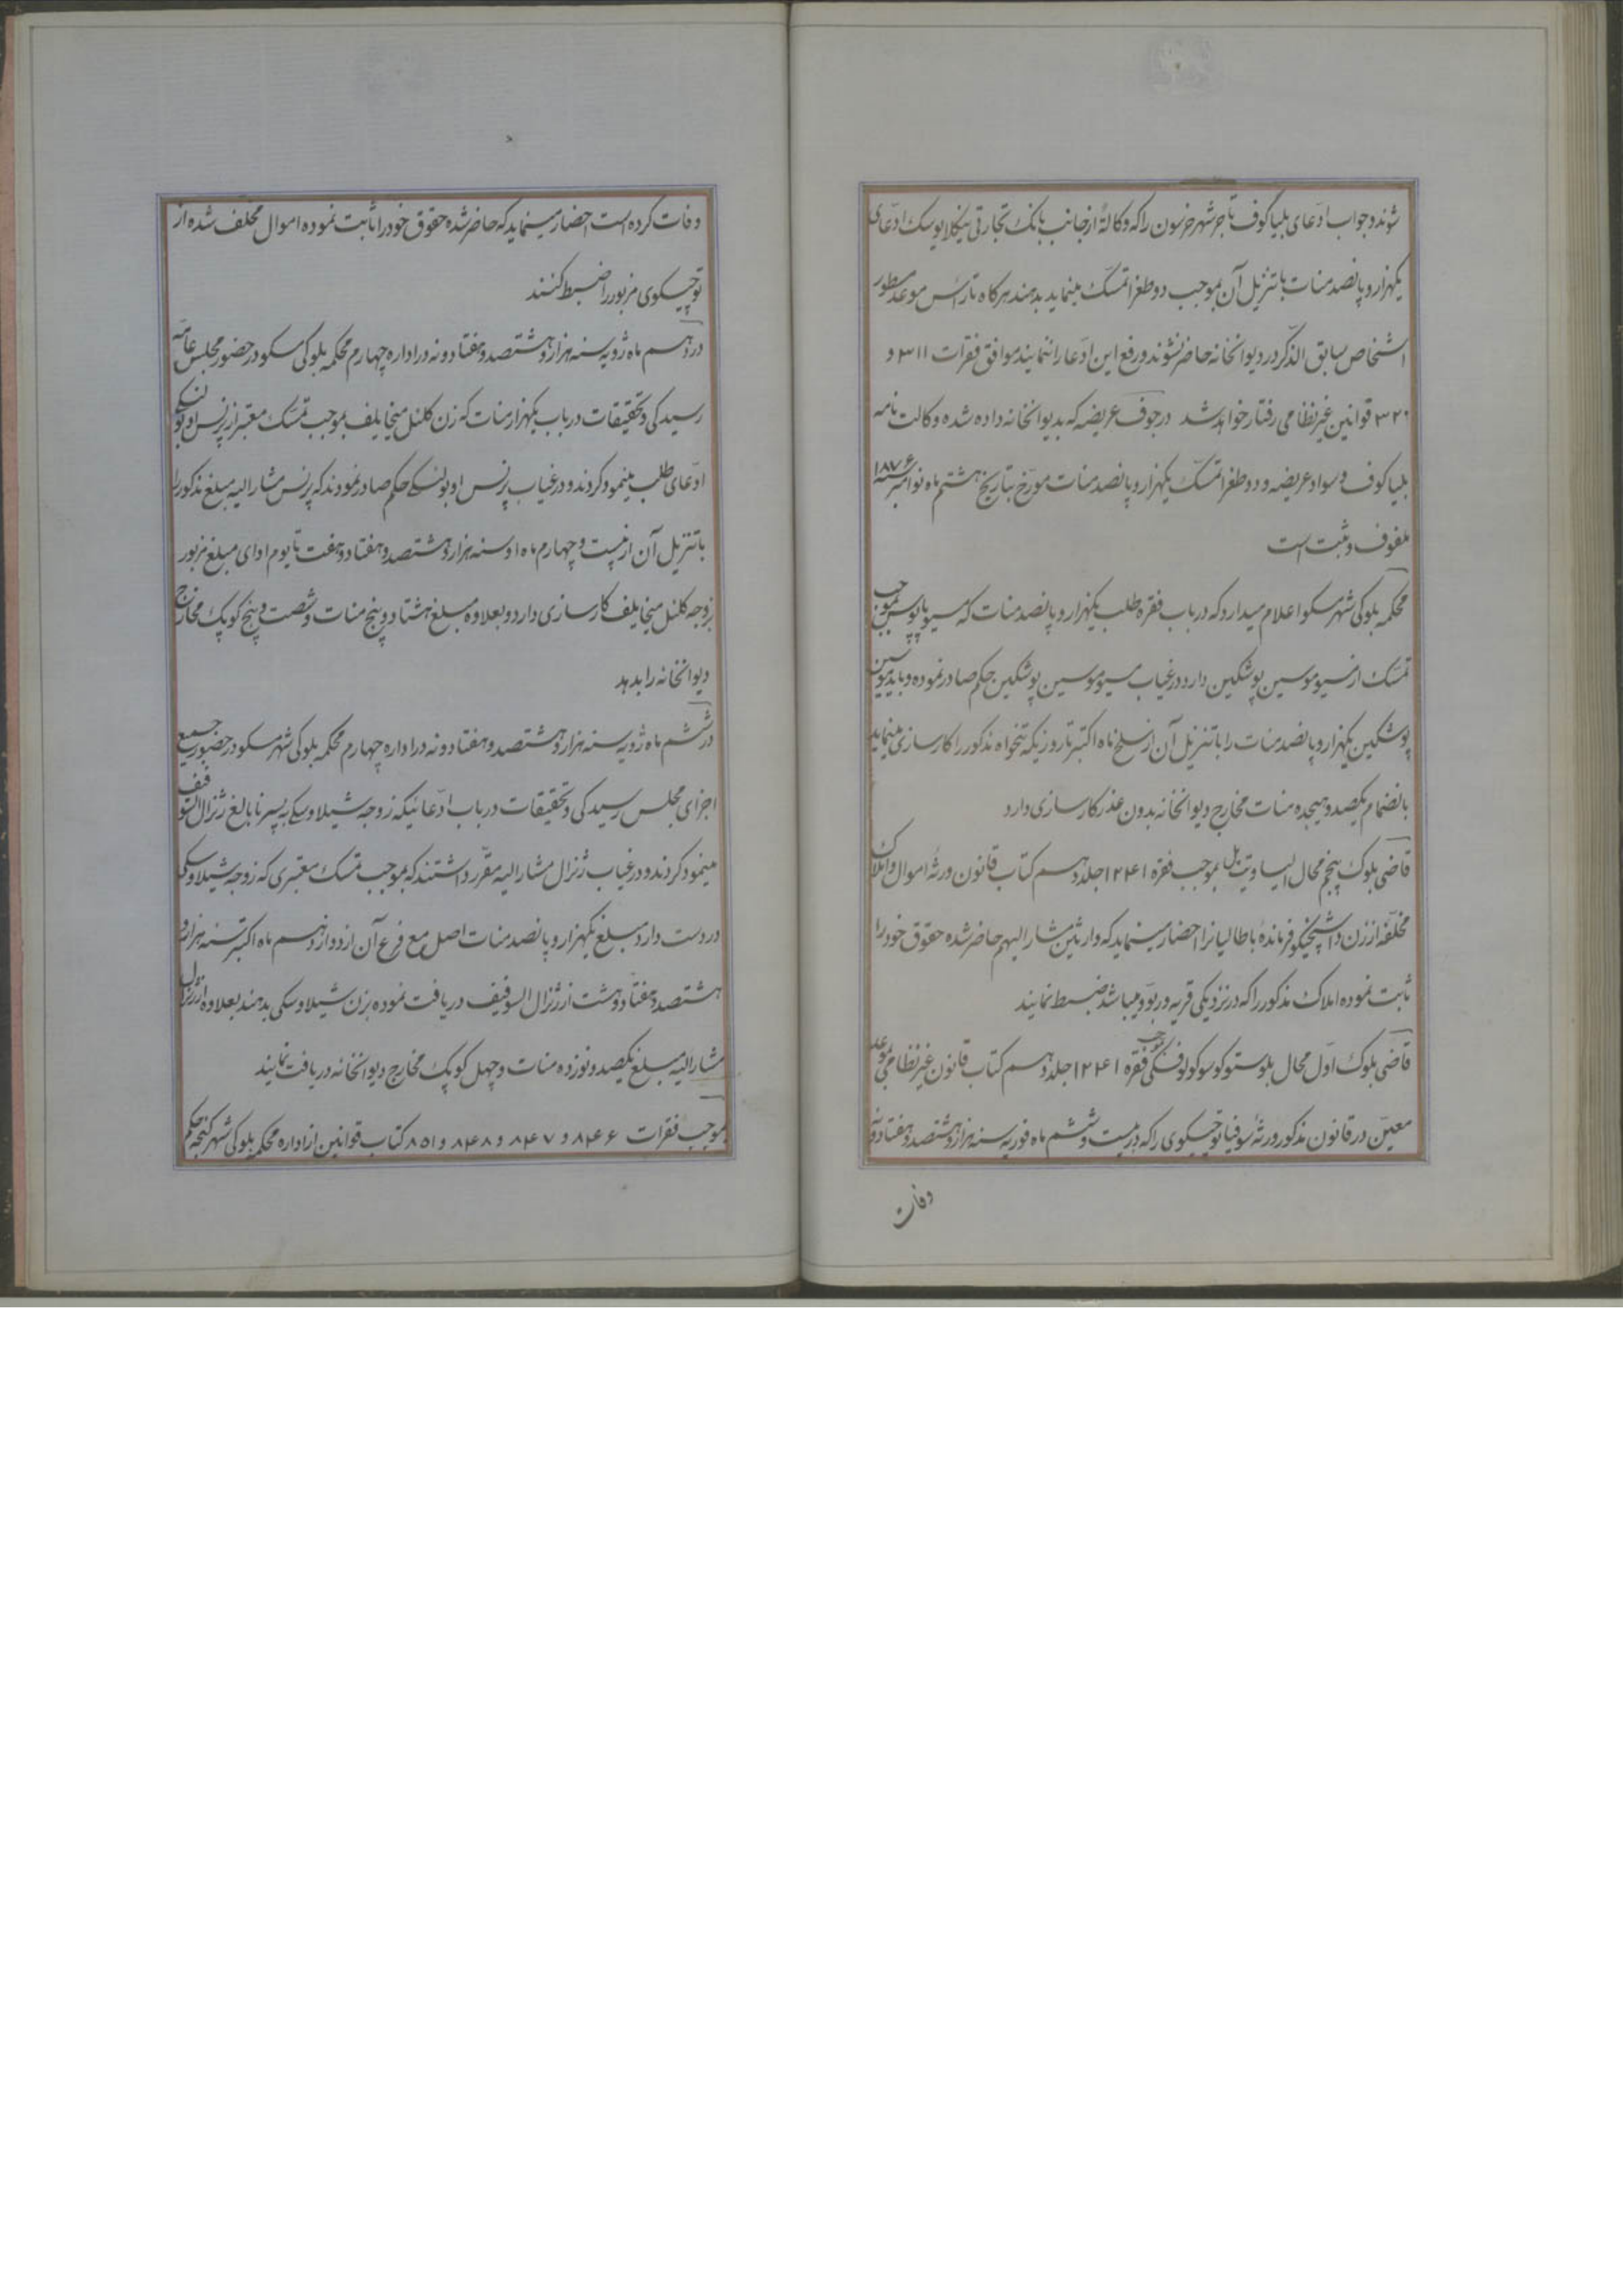 شوند و جواب ادّعای بلیاکوف تاجر شهر خرسون را که وکالةً از جانب بانک تجارتی نیکلایوسک ادّعای
یکهزار و پانصد منات با تنزیل آن بموجب دو طغرا تمسّک مینماید بدهند هرگاه تا رأس موعد مسطور
اشخاص سابق الذّکر در دیوانخانه حاضر نشوند و رفع این ادّعا را ننمایند موافق فقرات ۳۱۱ و
۳۲۰ قوانین غیر نظامی رفتار خواهد شد در جوف عریضه که بدیوانخانه داده شده وکالت نامه
بلیاکوف و سواد عریضه و دو طغرا تمسّک یکهزار و پانصد منات مورّخ بتاریخ هشتم ماه نوامبر سنه ۱۸۷۶
ملفوف و ثبت است
محکمه بلوکی شهر مسکو اعلام میدارد که در باب فقره طلب یکهزار و پانصد منات که مسیو پاپوس بموجب
تمسّک از مسیو موسین پوشکین دارد در غیاب مسیو موسین پوشکین حکم صادر نموده و باید موسین
پوشکین یکهزار و پانصد منات را با تنزیل آن از سلخ ماه اکتبر تا روزیکه تنخواه مذکور را کارسازی مینماید
بانضمام یکصد و هیجده منات مخارج دیوانخانه بدون عذر کارسازی دارد
قاضی بلوک پنجم محال الیساوتپل بموجب فقره ۱۲۴۱ جلد دهم کتاب قانون ورثه اموال و املاک
مخلّفه از زن داشچیکو فرمانده باطالیانرا احضار مینماید که وارثین مشار الیهم حاضر شده حقوق خود را
ثابت نموده املاک مذکور را که در نزدیکی قریه وربوو میباشد ضبط نمایند
قاضی بلوک اوّل محال بلوستوکوسوکولوفسکی بموجب فقره ۱۲۴۱ جلد دهم کتاب قانون غیر نظامی موعد
معیّن در قانون مذکور ورثه سوفیا توچیسکوی را که در بیست و ششم ماه فوریه سنه هزار و هشتصد و هفتاد و نه
وفات
وفات کرده است احضار مینماید که حاضر شده حقوق خود را ثابت نموده اموال مخلف شده از
توچیسکوی مزبور را ضبط کنند
در دهم ماه ژویه سنه هزار و هشتصد و هفتاد و نه در اداره چهارم محکمه بلوکی مسکو در حضور مجلس عامّه
رسیدگی و تحقیقات در باب یکهزار منات که زن کلنل میخایلف بموجب تمسّک معتبر از پرنس اوبولنسکی
ادّعای طلب مینمود کردند و در غیاب پرنس اوبولنسکی حکم صادر نمودند که پرنس مشار الیه مبلغ مذکور را
با تنزیل آن از بیست و چهارم ماه اوت سنه هزار و هشتصد و هفتاد و هفت تا یوم ادای مبلغ مزبور
بزوجه کلنل میخایلف کارسازی دارد و بعلاوه مبلغ هشتاد و پنج منات و شصت و پنج کوپک مخارج
دیوانخانه را بدهد
در ششم ماه ژویه سنه هزار و هشتصد و هفتاد و نه در اداره چهارم محکمه بلوکی شهر مسکو در حضور جمیع
اجزای مجلس رسیدگی و تحقیقات در باب ادّعائیکه زوجه شیلاوسکی به پسر نابالغ ژنرال السوفیف
مینمود کردند و در غیاب ژنرال مشار الیه مقرّر داشتند که بموجب تمسّک معتبری که زوجه شیلاوسکی
در دست دارد مبلغ یکهزار و پانصد منات اصل مع فرع آن از دوازدهم ماه اکتبر سنه هزار و
هشتصد و هفتاد و هشت از ژنرال السوفیف دریافت نموده بزن شیلاوسکی بدهند بعلاوه از ژنرال
مشار الیه مبلغ یکصد و نوزده منات و چهل کوپک مخارج دیوانخانه دریافت نمایند
بموجب فقرات ۸۴۶ و ۸۴۷ و ۸۴۸ و ۸۵۱ کتاب قوانین از اداره محکمه بلوکی شهر گنجه حکم